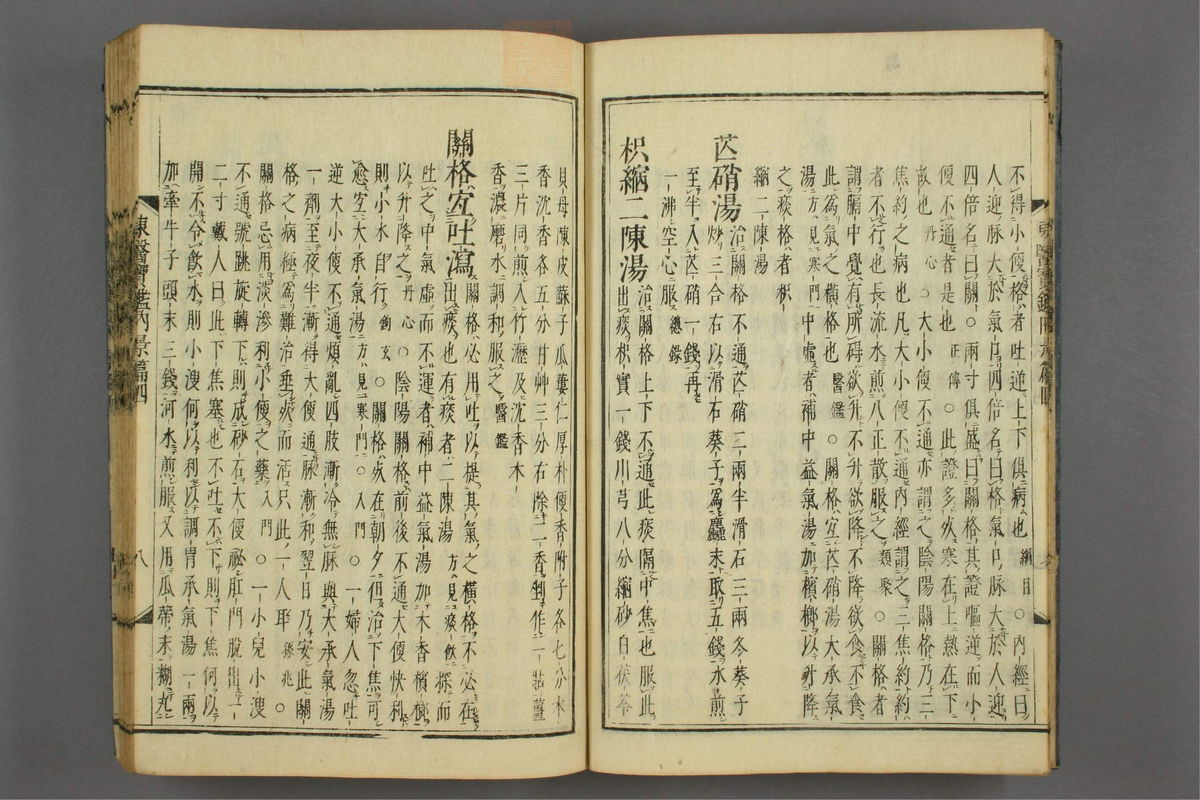 不得小便格者吐逆上下俱病也綱目○內經曰
人迎脉大於氣口四倍名曰格氣口脉大於人迎
四倍名曰關○兩寸俱盛曰關格其證嘔逆而小
便不通者是也正傳○此證多死寒在上熱在下
故也丹心○大小便不通亦謂之陰陽關格乃三
焦約之病也凡大小便不通內經謂之三焦約約
者不行也長流水煎八正散服之類聚○關格者
謂膈中覺有所碍欲升不升欲降不降欲食不食
此爲氣之橫格也醫鑑○關格宜芒硝湯大承氣
湯方見寒門中虛者補中益氣湯加檳榔以升降
之痰格者枳
縮二陳湯
芒硝湯 治關格不通芒硝二兩半滑石三兩冬葵子
炒三合右以滑石葵子爲麤末取五錢水煎
至半入芒硝一錢再
一沸空心服總錄
枳縮二陳湯 治關格上下不通此痰隔中焦也服此
出痰枳實一錢川芎八分縮砂白茯苓
貝母陳皮蘇子瓜蔞仁厚朴便香附子各七分木
香沈香各五分甘艸三分右除二香剉作一貼薑
三片同煎入竹瀝及沈香木
香濃磨水調和服之醫鑑
關格宜吐瀉 關格必用吐以提其氣之橫格不必在
出痰也有痰者二陳湯方見痰飮探而
吐之中氣虛而不運者補中益氣湯加木香檳榔
以升降之丹心○陰陽關格前後不通大便快利
則小水自行鉤玄○關格死在朝夕但治下焦可
愈宜大承氣湯方見寒門○入門○一婦人忽吐
逆大小便不通煩亂四肢漸冷無脉與大承氣湯
一劑至夜半漸得大便通脉漸和翌日乃安此關
格之病極爲難治垂死而活只此一人耳孫兆○
關格忌用淡滲利小便之藥入門○一小兒小溲
不通號跳旋轉下則成砂石大便祕肛門脫出一
二寸戴人曰此下焦塞也不吐不下則下焦何以
開不令飮水則小溲何以利以調胃承氣湯一兩
加牽牛子頭末三錢河水煎服又用瓜蔕末糊丸
東醫寶鑑內景篇四
八